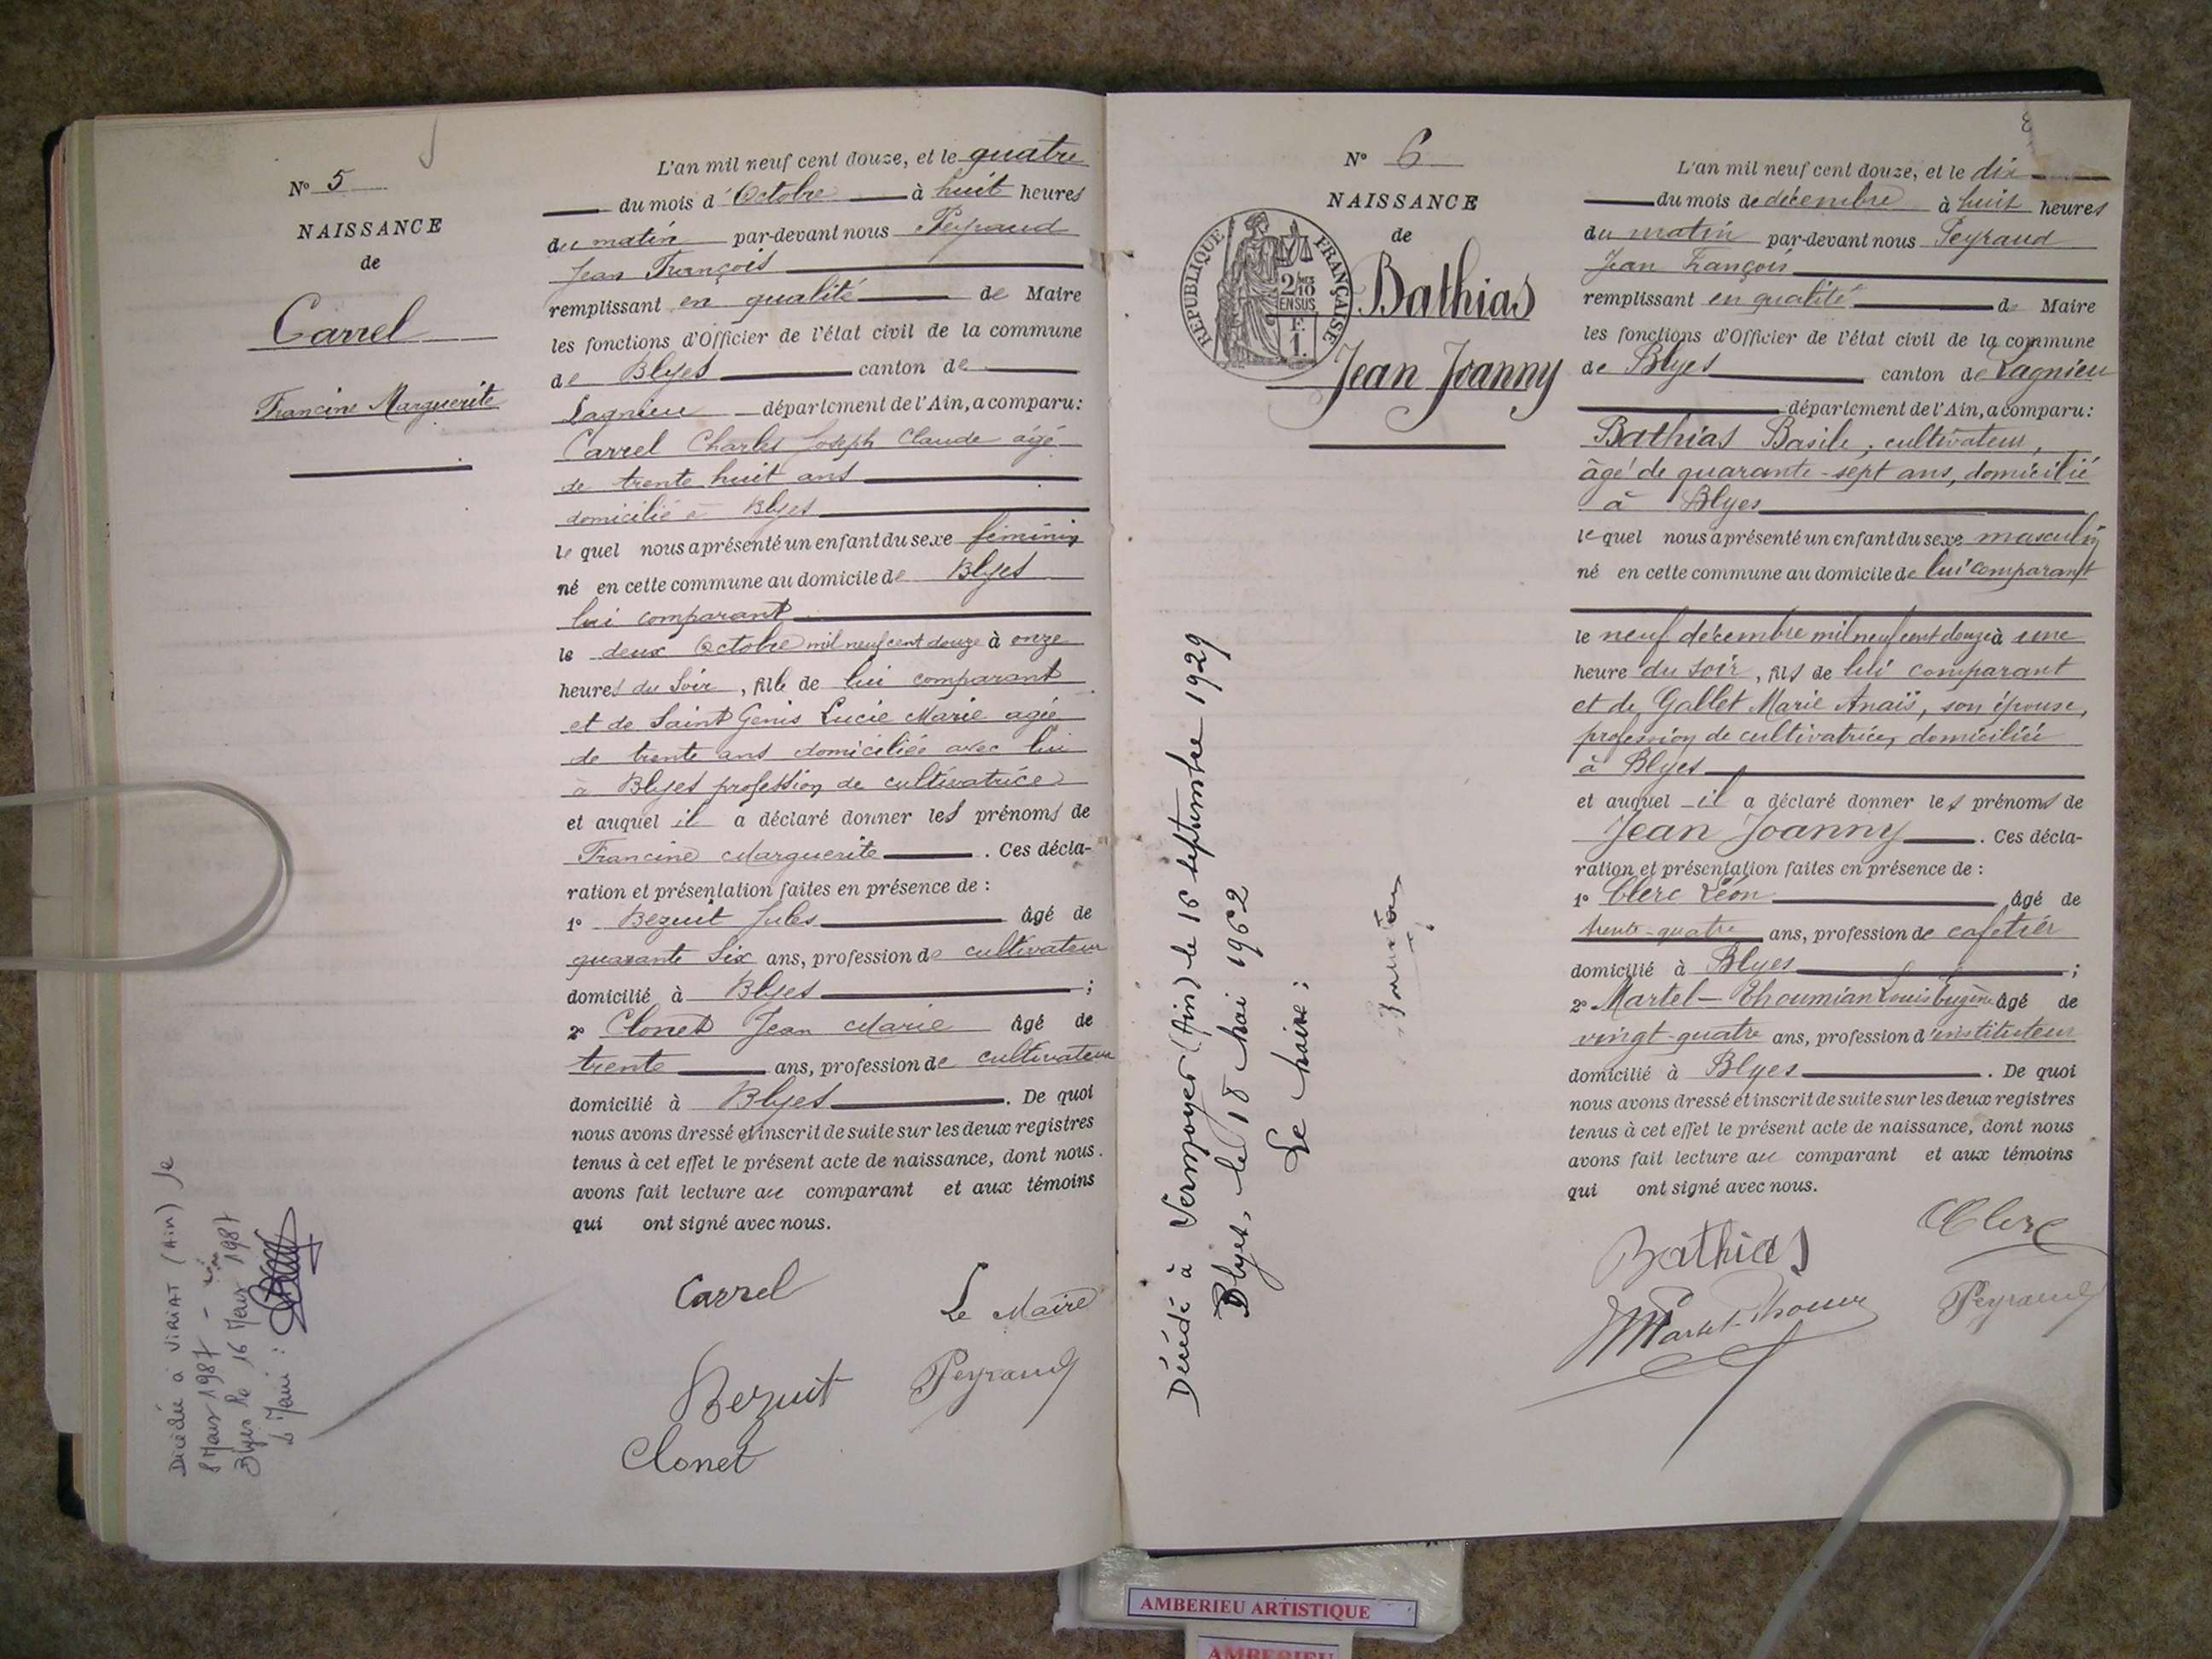 N° 5
NAISSANCE
de
Carrel
Francine Marguerite
L'an mil neuf cent douze, et le quatre
du mois d'Octobre à huit heures
du matin par-devant nous Peyraud
Jean François
remplissant en qualité de Maire
les fonctions d'Officier de l'état civil de la commune
de Blyes canton de
Lagnieu département de l'Ain, a comparu:
Carrel Charles Joseph Claude agé
de trente huit ans
domicilié à Blyes
le quel nous a présenté un enfant du sexe féminin
né en cette commune au domicile de Blyes
lui comparant
le deux Octobre mil neuf cent douze à onze
heures du soir, fille de lui comparant
et de Saint Genis Lucie Marie agée
de trente ans domiciliée avec lui
à Blyes profession de cultivatrice
et auquel il a déclaré donner les prénoms de
Francine Marguerite. Ces décla-
ration et présentation faites en présence de :
1° Bezuit Jules âgé de
quarante six ans, profession de cultivateur
domicilié à Blyes ;
2° Clonet Jean Marie âgé de
trente ans, profession de cultivateur
domicilié à Blyes. De quoi
nous avons dressé et inscrit de suite sur les deux registres
tenus à cet effet le présent acte de naissance, dont nous
avons fait lecture au comparant et aux témoins
qui ont signé avec nous.
Carrel
Le Maire
Bezuit
Peyraud
Clonet
Décédée à VIRIAT (Ain) le
8 Mars 1987 -
Blyes le 16 Mars 1987
Le Maire :
N° 6
NAISSANCE
de
REPUBLIQUE FRANÇAISE
2/10 EN SUS
F.
1.
Bathias
Jean Joanny
Décédé à Vermoyer (Ain) le 16 septembre 1929
Blyes, le 18 Mai 1962
Le Maire :
8
L'an mil neuf cent douze, et le dix
du mois de décembre à huit heures
du matin par-devant nous Peyraud
Jean François
remplissant en qualité de Maire
les fonctions d'Officier de l'état civil de la commune
de Blyes canton de Lagnieu
département de l'Ain, a comparu:
Bathias Basile, cultivateur,
âgé de quarante-sept ans, domicilié
à Blyes
le quel nous a présenté un enfant du sexe masculin
né en cette commune au domicile de lui comparant
le neuf décembre mil neuf cent douze à une
heure du soir, fils de lui comparant
et de Gallet Marie Anaïs, son épouse,
profession de cultivatrice, domiciliée
à Blyes
et auquel il a déclaré donner les prénoms de
Jean Joanny. Ces décla-
ration et présentation faites en présence de :
1° Clerc Léon âgé de
trente-quatre ans, profession de cafetier
domicilié à Blyes ;
2° Martel-Thoumian Louis Eugène âgé de
vingt-quatre ans, profession d'instituteur
domicilié à Blyes. De quoi
nous avons dressé et inscrit de suite sur les deux registres
tenus à cet effet le présent acte de naissance, dont nous
avons fait lecture au comparant et aux témoins
qui ont signé avec nous.
Bathias
Clerc
Martel-Thoum
Peyraud
AMBERIEU ARTISTIQUE
AMBERIEU